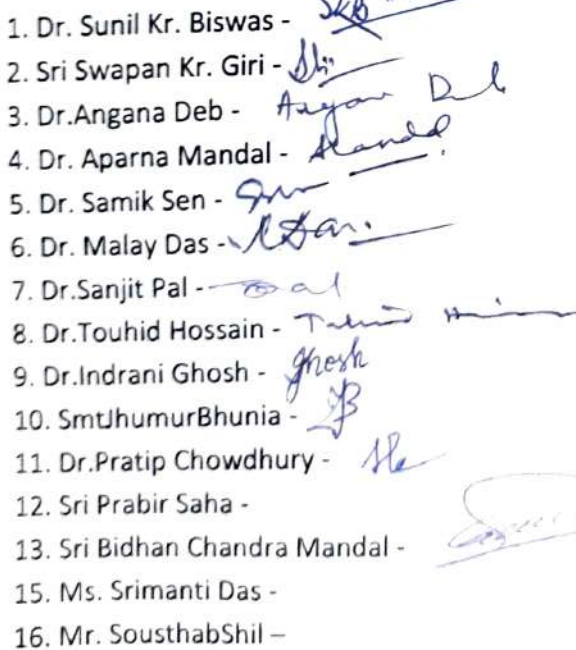 1. Dr. Sunil Kr. Biswas - SKB
2. Sri Swapan Kr. Giri -
3. Dr.Angana Deb - Angana Deb
4. Dr. Aparna Mandal - AMandal
5. Dr. Samik Sen -
6. Dr. Malay Das -
7. Dr.Sanjit Pal -
8. Dr.Touhid Hossain -
9. Dr.Indrani Ghosh - Ghosh
10. SmtJhumurBhunia - JB
11. Dr.Pratip Chowdhury -
12. Sri Prabir Saha -
13. Sri Bidhan Chandra Mandal -
15. Ms. Srimanti Das -
16. Mr. SousthabShil –